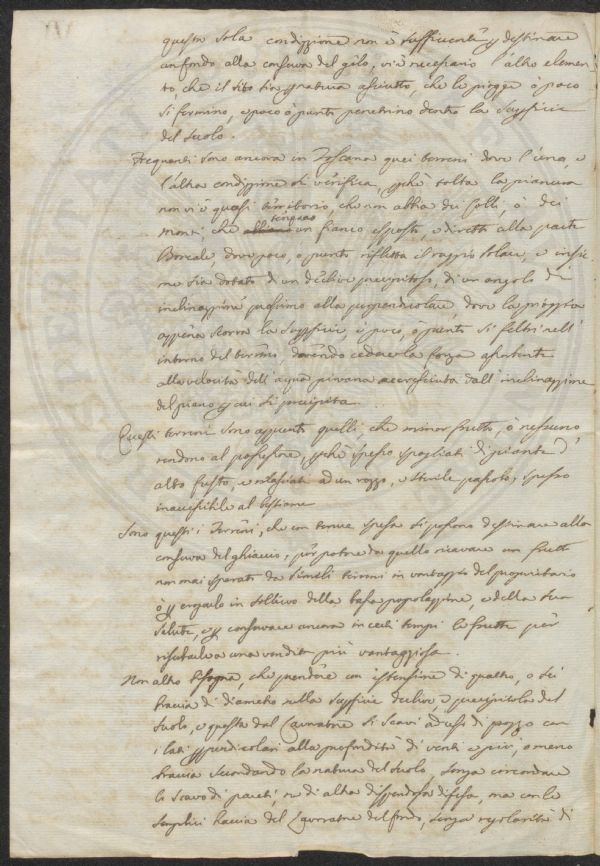 questa sola condizzione non è sufficiente p destinare
un fondo alla conserva del gelo, vi è necessario l'altro elemen=
to, che il sito sia p natura asciutto, che le piogge o poco
si fermino, e poco o punto penetrino dentro la superficie
del suolo.
Frequenti sono ancora in Toscana quei terreni dove l'una, e
l'altra condizzione si verifica, pchè tolta la pianura
non vi è quasi territorio, che non abbia dei Colli, o dei
monti che un fianco esposto, e diretto alla parte
Boreale, dove poco, o punto rifletta il raggio solare, e insie=
me sia dotato di un declive precipitoso, di un angolo di
inclinazzione prossimo alla perpendicolare, dove la pioggia
appena scorra la superficie, e poco, o punto si filtri nell'
interno del terreno, dovendo cedere la forza assorbente
alla velocità dell'acqua piovana accresciuta dall'inclinazzione
del piano p cui si precipita.
Questi terreni sono appunto quelli, che minor frutto, o nessuno
rendono al possessore, pchè spesso spogliati di piante d'
alto fusto, e rilasciati ad un rozzo, e sterile pascolo, spesso
inaccessibile al bestiame
Sono questi i Terreni, che con tenue spesa si possono destinare alla
conserva del ghiaccio, p potere da quello ricavare un frutto
non mai sperato da simili terreni in vantaggio del proprietario
o p erogarlo in sollievo della bassa popolazzione, e della sua
salute, e p conservare ancora in certi tempi le frutte p
riserbarle a una vendita più vantaggiosa.
Non altro bisogna, che prendere con estensione di quattro, o sei
braccia di diametro sulla superficie declive, e precipitosa del
suolo, e questa dal Cavatore si scavi ad uso di pozzo con
i lati ppendicolari alla profondità di venti e più, o meno
braccia secondando la natura del suolo, senza circondare
lo scavo di pareti, nè di altra dispendiosa difesa, ma con la
semplice traccia del Lavoratore del fondo, senza regolarità di